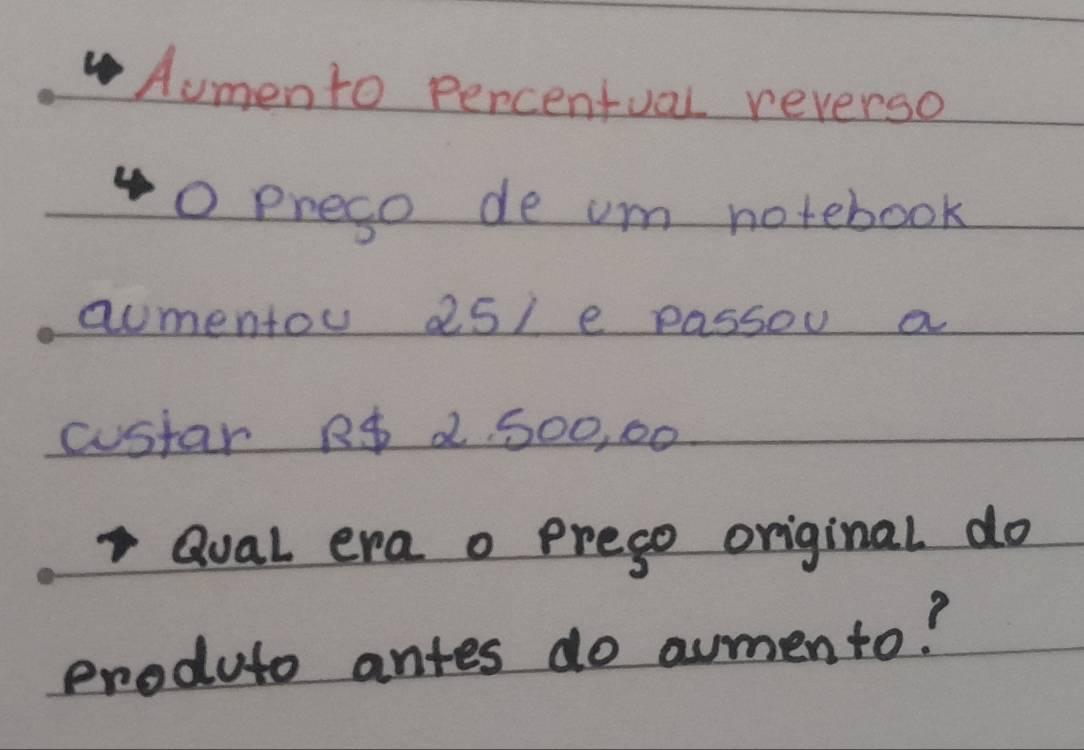 ↳ Aumento percentual reverso
↳ O preço de um notebook
aumentou 25/ e passou a
custar R$ 2.500,00
→ Qual era o preço original do
produto antes do aumento?